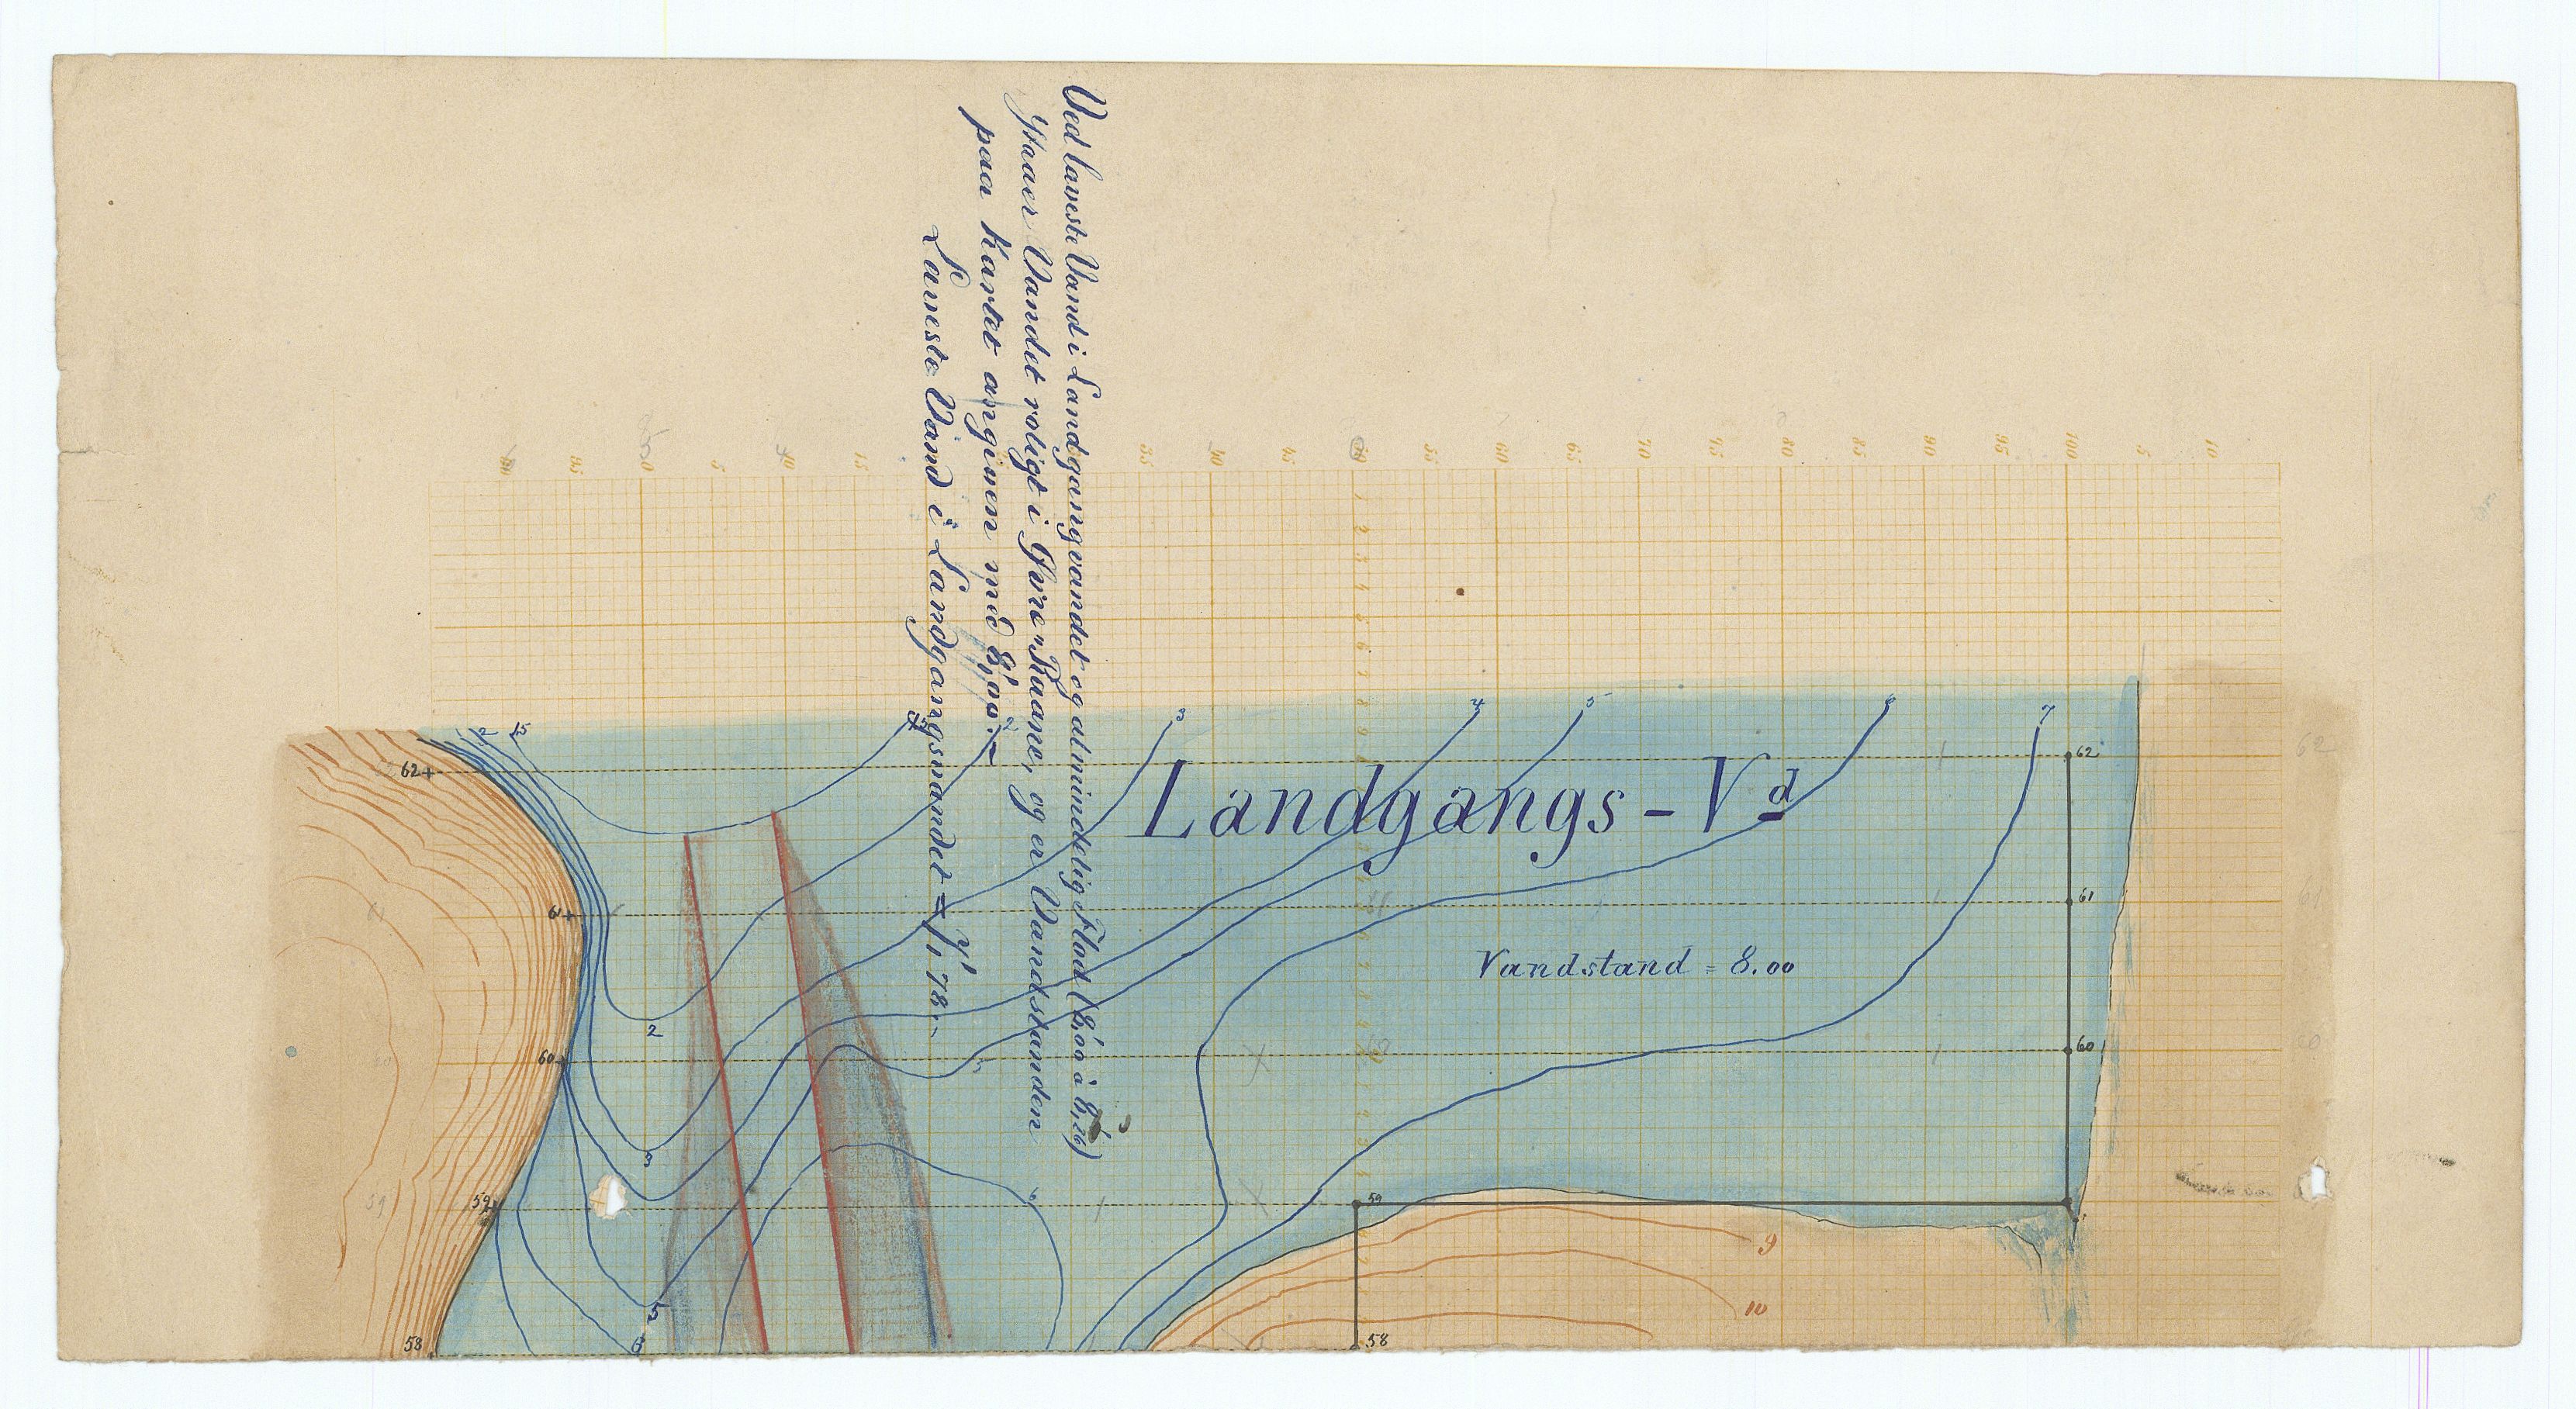 Ved laveste Vand i Landgangvandet og almindelig Flod (8,00 à 8,26)
staaer Vandet roligt i Øvre Raane, og er Vandstanden
paa Kartet angiven med 8,00.
Laveste Vand i Landgangsvandet = 7,78.
90 95 0 5 10 15 35 40 45 50 55 60 65 70 75 80 85 90 95 100 5 10
1 2 15 15 2 3 4 5 6 7
62 62
Landgangs - Vd
61 61
Vandstand = 8.00
2
60 5 60
3
6
59 59
9
5 10
6
58 58